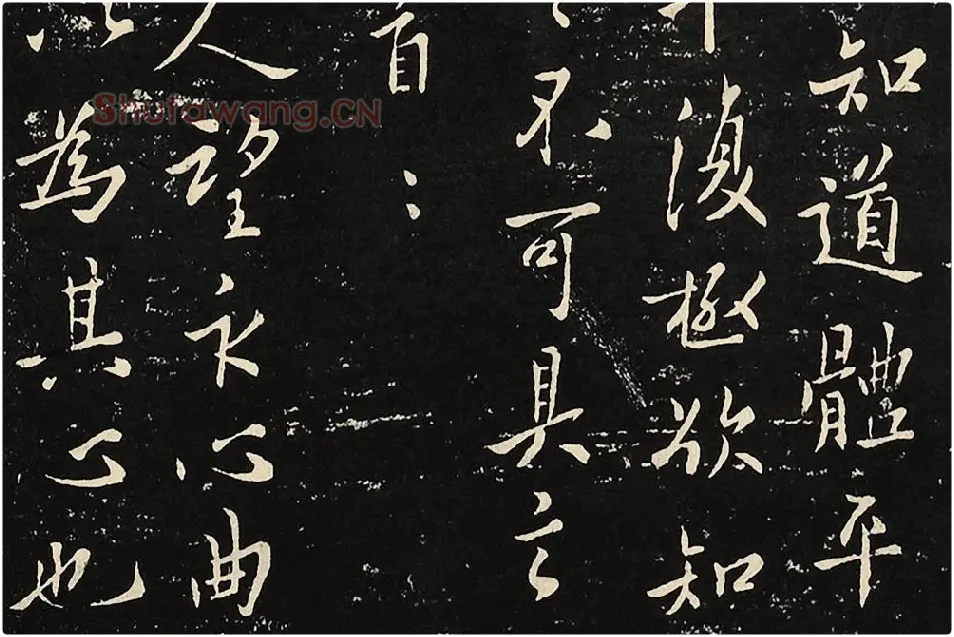 知道體平
復極欲知
不可具言
首
人望心曲
以為其也
Shufawang.CN